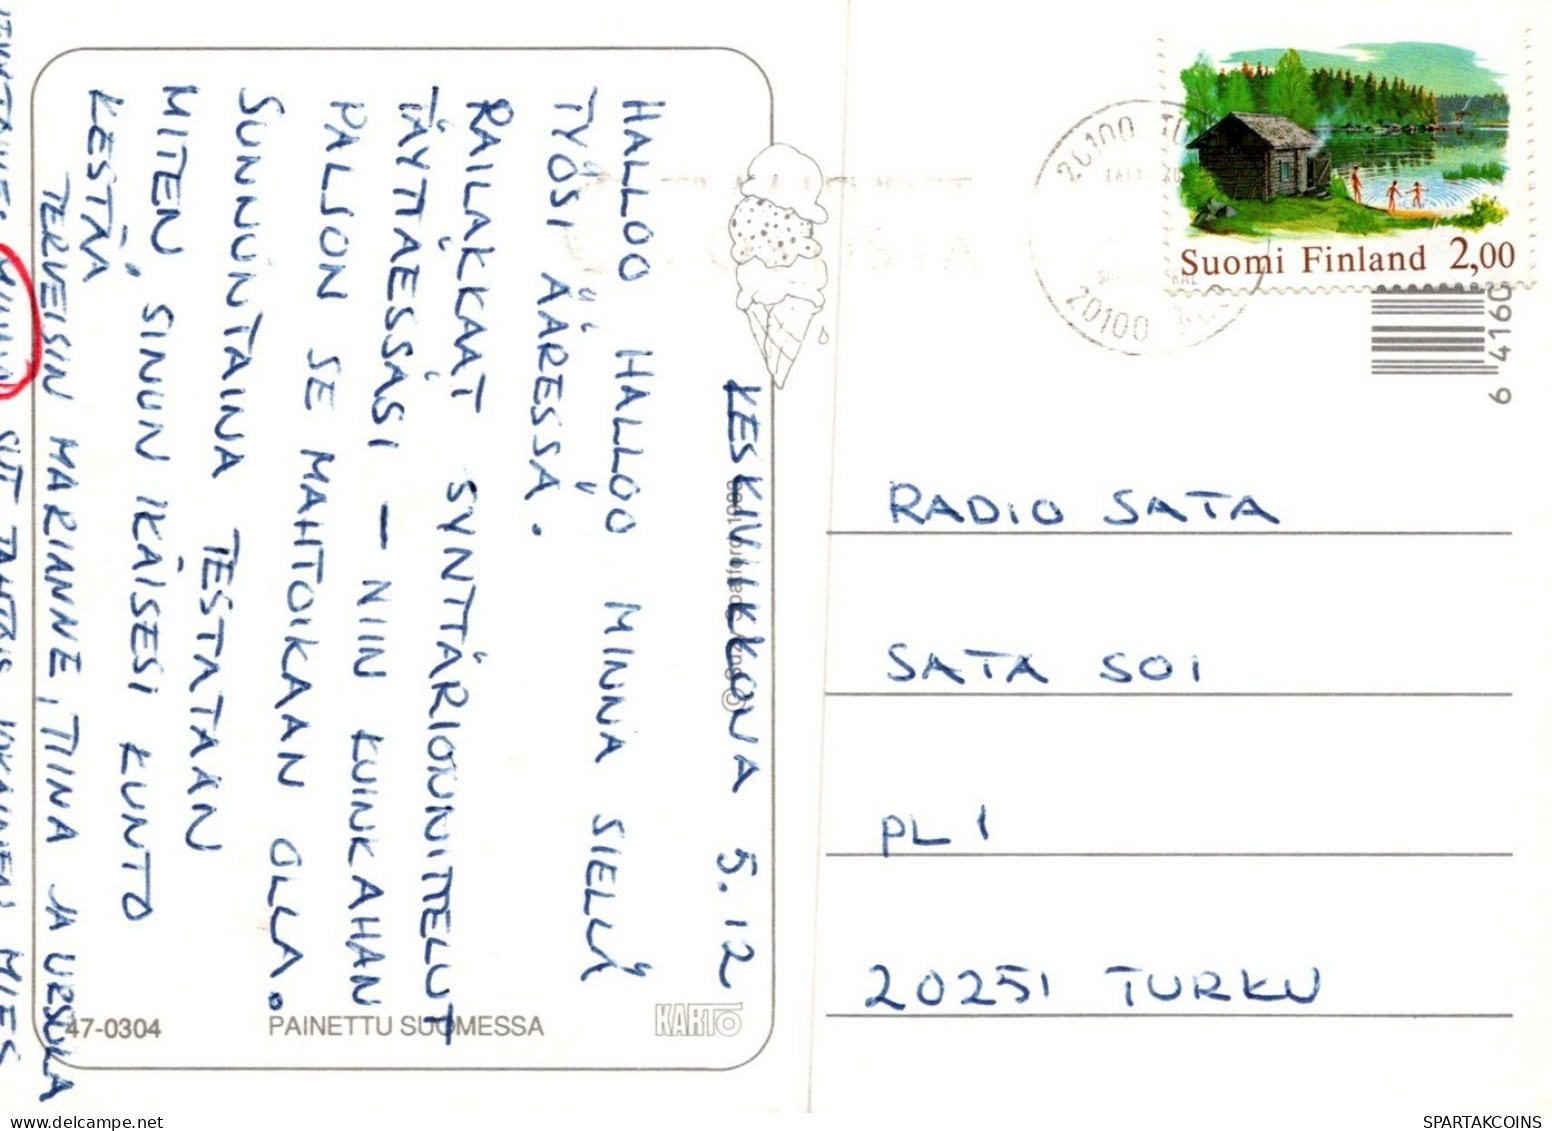 KESKIVIIKKONA 5.12
HALLOO HALLOO MINNA SIELLÄ
TYÖSI ÄÄRESSÄ.
RAILAKKAAT SYNTTÄRIONNITTELUT
TÄYTTÄESSÄSI — NIIN KUINKAHAN
PALJON SE MAHTOIKAAN OLLA.
SUNNUNTAINA TESTATAAN
MITEN SINUN IKÄISESI KUNTO
KESTÄÄ
TERVEISIN MARIANNE, TIINA JA URSULA
SUT JOKAINEN MIES
47-0304
PAINETTU SUOMESSA
KARTO
20100
20100
Suomi Finland 2,00
6 4160
RADIO SATA
SATA SOI
PL 1
20251 TURKU
SPARTAKCOINS
delcampe.net